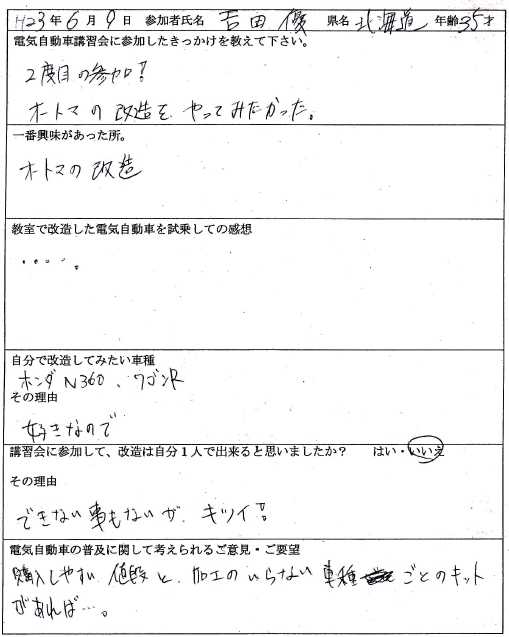 H23年6月9日 参加者氏名 吉田 優 県名 北海道 年齢35才
電気自動車講習会に参加したきっかけを教えて下さい。
2度目の参加!!
オートマの改造を やってみたかった。
一番興味があった所。
オートマの改造
教室で改造した電気自動車を試乗しての感想
・・・・・。
自分で改造してみたい車種
ホンダ N360、ワゴンR
その理由
好きなので
講習会に参加して、改造は自分1人で出来ると思いましたか? はい・いいえ
その理由
できない事もないが、キツイ!!
電気自動車の普及に関して考えられるご意見・ご要望
購入しやすい 値段と、加工のいらない 車種ごとのキット
があれば…。